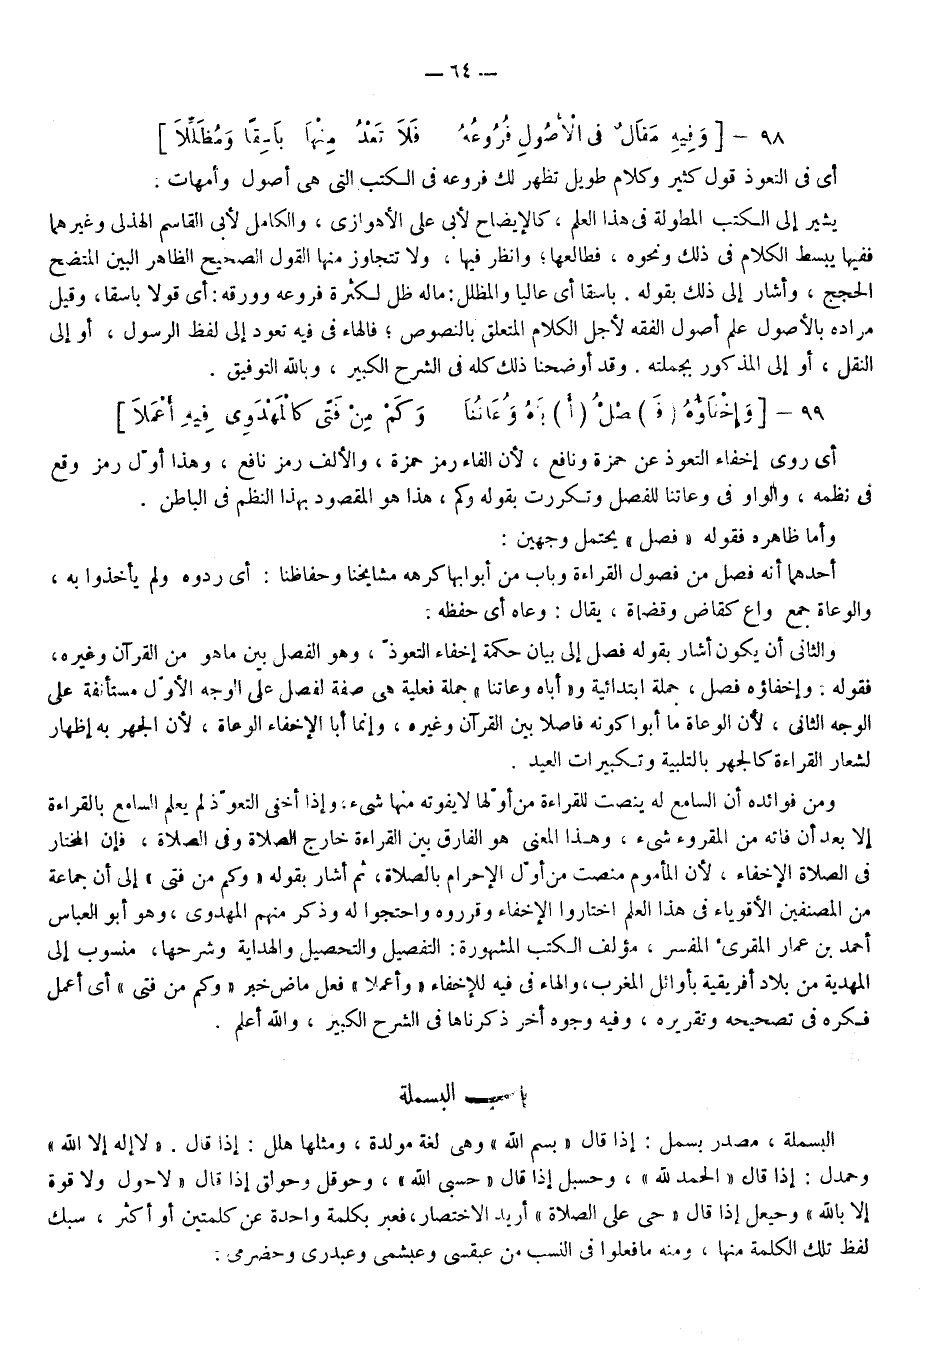 — ٦٤ —
٩٨ — [ وَفِيهِ مَقَالٌ فى الْأُصُولِ فُرُوعُهُ فَلَا تَعْدُ مِنْهَا بَاسِقًا وَمُظَلِّلاَ ]
أى فى التعوذ قول كثير وكلام طويل تظهر لك فروعه فى الكتب التى هى أصول وأمهات .
يشير إلى الكتب المطولة فى هذا العلم ، كالإيضاح لأبى على الأهوازى ، والكامل لأبى القاسم الهذلى وغيرهما
ففيها يبسط الكلام فى ذلك ونحوه ، فطالعها ؛ وانظر فيها ، ولا تتجاوز منها القول الصحيح الظاهر البين المتضح
الحجج ، وأشار إلى ذلك بقوله . باسقا أى عاليا والمظلل : ماله ظل لكثرة فروعه وورقه : أى قولا باسقا ، وقيل
مراده بالأصول علم أصول الفقه لأجل الكلام المتعلق بالنصوص ؛ فالهاء فى فيه تعود إلى لفظ الرسول ، أو إلى
النقل ، أو إلى المذكور بجملته . وقد أوضحنا ذلك كله فى الشرح الكبير ، وبالله التوفيق .
٩٩ — [ وَإِخْفَاؤُهُ ( فَ ) صْلٌ ( أَ ) بَاهُ وُعَاتُنَا وَكَمْ مِنْ فَتًى كَالْمَهْدَوِى فِيهِ أَعْمَلاَ ]
أى روى إخفاء التعوذ عن حمزة ونافع ، لأن الفاء رمز حمزة ، والألف رمز نافع ، وهذا أوّل رمز وقع
فى نظمه ، والواو فى وعاتنا للفصل وتكررت بقوله وكم ، هذا هو المقصود بهذا النظم فى الباطن .
وأما ظاهره فقوله « فصل » يحتمل وجهين :
أحدهما أنه فصل من فصول القراءة وباب من أبوابها كرهه مشايخنا وحفاظنا : أى ردوه ولم يأخذوا به ،
والوعاة جمع واع كقاض وقضاة ، يقال : وعاه أى حفظه :
والثانى أن يكون أشار بقوله فصل إلى بيان حكمة إخفاء التعوذّ ، وهو الفصل بين ماهو من القرآن وغيره ،
فقوله : وإخفاؤه فصل ، جملة ابتدائية و« أباه وعاتنا » جملة فعلية هى صفة لفصل على الوجه الأوّل مستأنفة على
الوجه الثانى ، لأن الوعاة ما أبوا كونه فاصلا بين القرآن وغيره ، وإنما أبا الإخفاء الوعاة ، لأن الجهر به إظهار
لشعار القراءة كالجهر بالتلبية وتكبيرات العيد .
ومن فوائده أن السامع له ينصت للقراءة من أوّلها لايفوته منها شىء ، وإذا أخفى التعوّذ لم يعلم السامع بالقراءة
إلا بعد أن فاته من المقروء شىء ، وهذا المعنى هو الفارق بين القراءة خارج الصلاة وفى الصلاة ، فإن المختار
فى الصلاة الإخفاء ، لأن المأموم منصت من أوّل الإحرام بالصلاة ، ثم أشار بقوله « وكم من فتى » إلى أن جماعة
من المصنفين الأقوياء فى هذا العلم اختاروا الإخفاء وقرروه واحتجوا له وذكر منهم المهدوى ، وهو أبو العباس
أحمد بن عمار المقرىء المفسر ، مؤلف الكتب المشهورة : التفصيل والتحصيل والهداية وشرحها ، منسوب إلى
المهدية من بلاد أفريقية بأوائل المغرب ، والهاء فى فيه للإخفاء « وأعملا » فعل ماض خبر « وكم من فتى » أى أعمل
فكره فى تصحيحه وتقريره ، وفيه وجوه أخر ذكرناها فى الشرح الكبير ، والله أعلم .
باب البسملة
البسملة ، مصدر بسمل : إذا قال « بسم الله » وهى لغة مولدة ، ومثلها هلل : إذا قال . « لا إله إلا الله »
وحمدل : إذا قال « الحمد لله » ، وحسبل إذا قال « حسبى الله » ، وحوقل وحولق إذا قال « لاحول ولا قوة
إلا بالله » وحيعل إذا قال « حى على الصلاة » أريد الاختصار ، فعبر بكلمة واحدة عن كلمتين أو أكثر ، سبك
لفظ تلك الكلمة منها ، ومنه مافعلوا فى النسب من عبقسى وعبشمى وعبدرى وحضرمى :